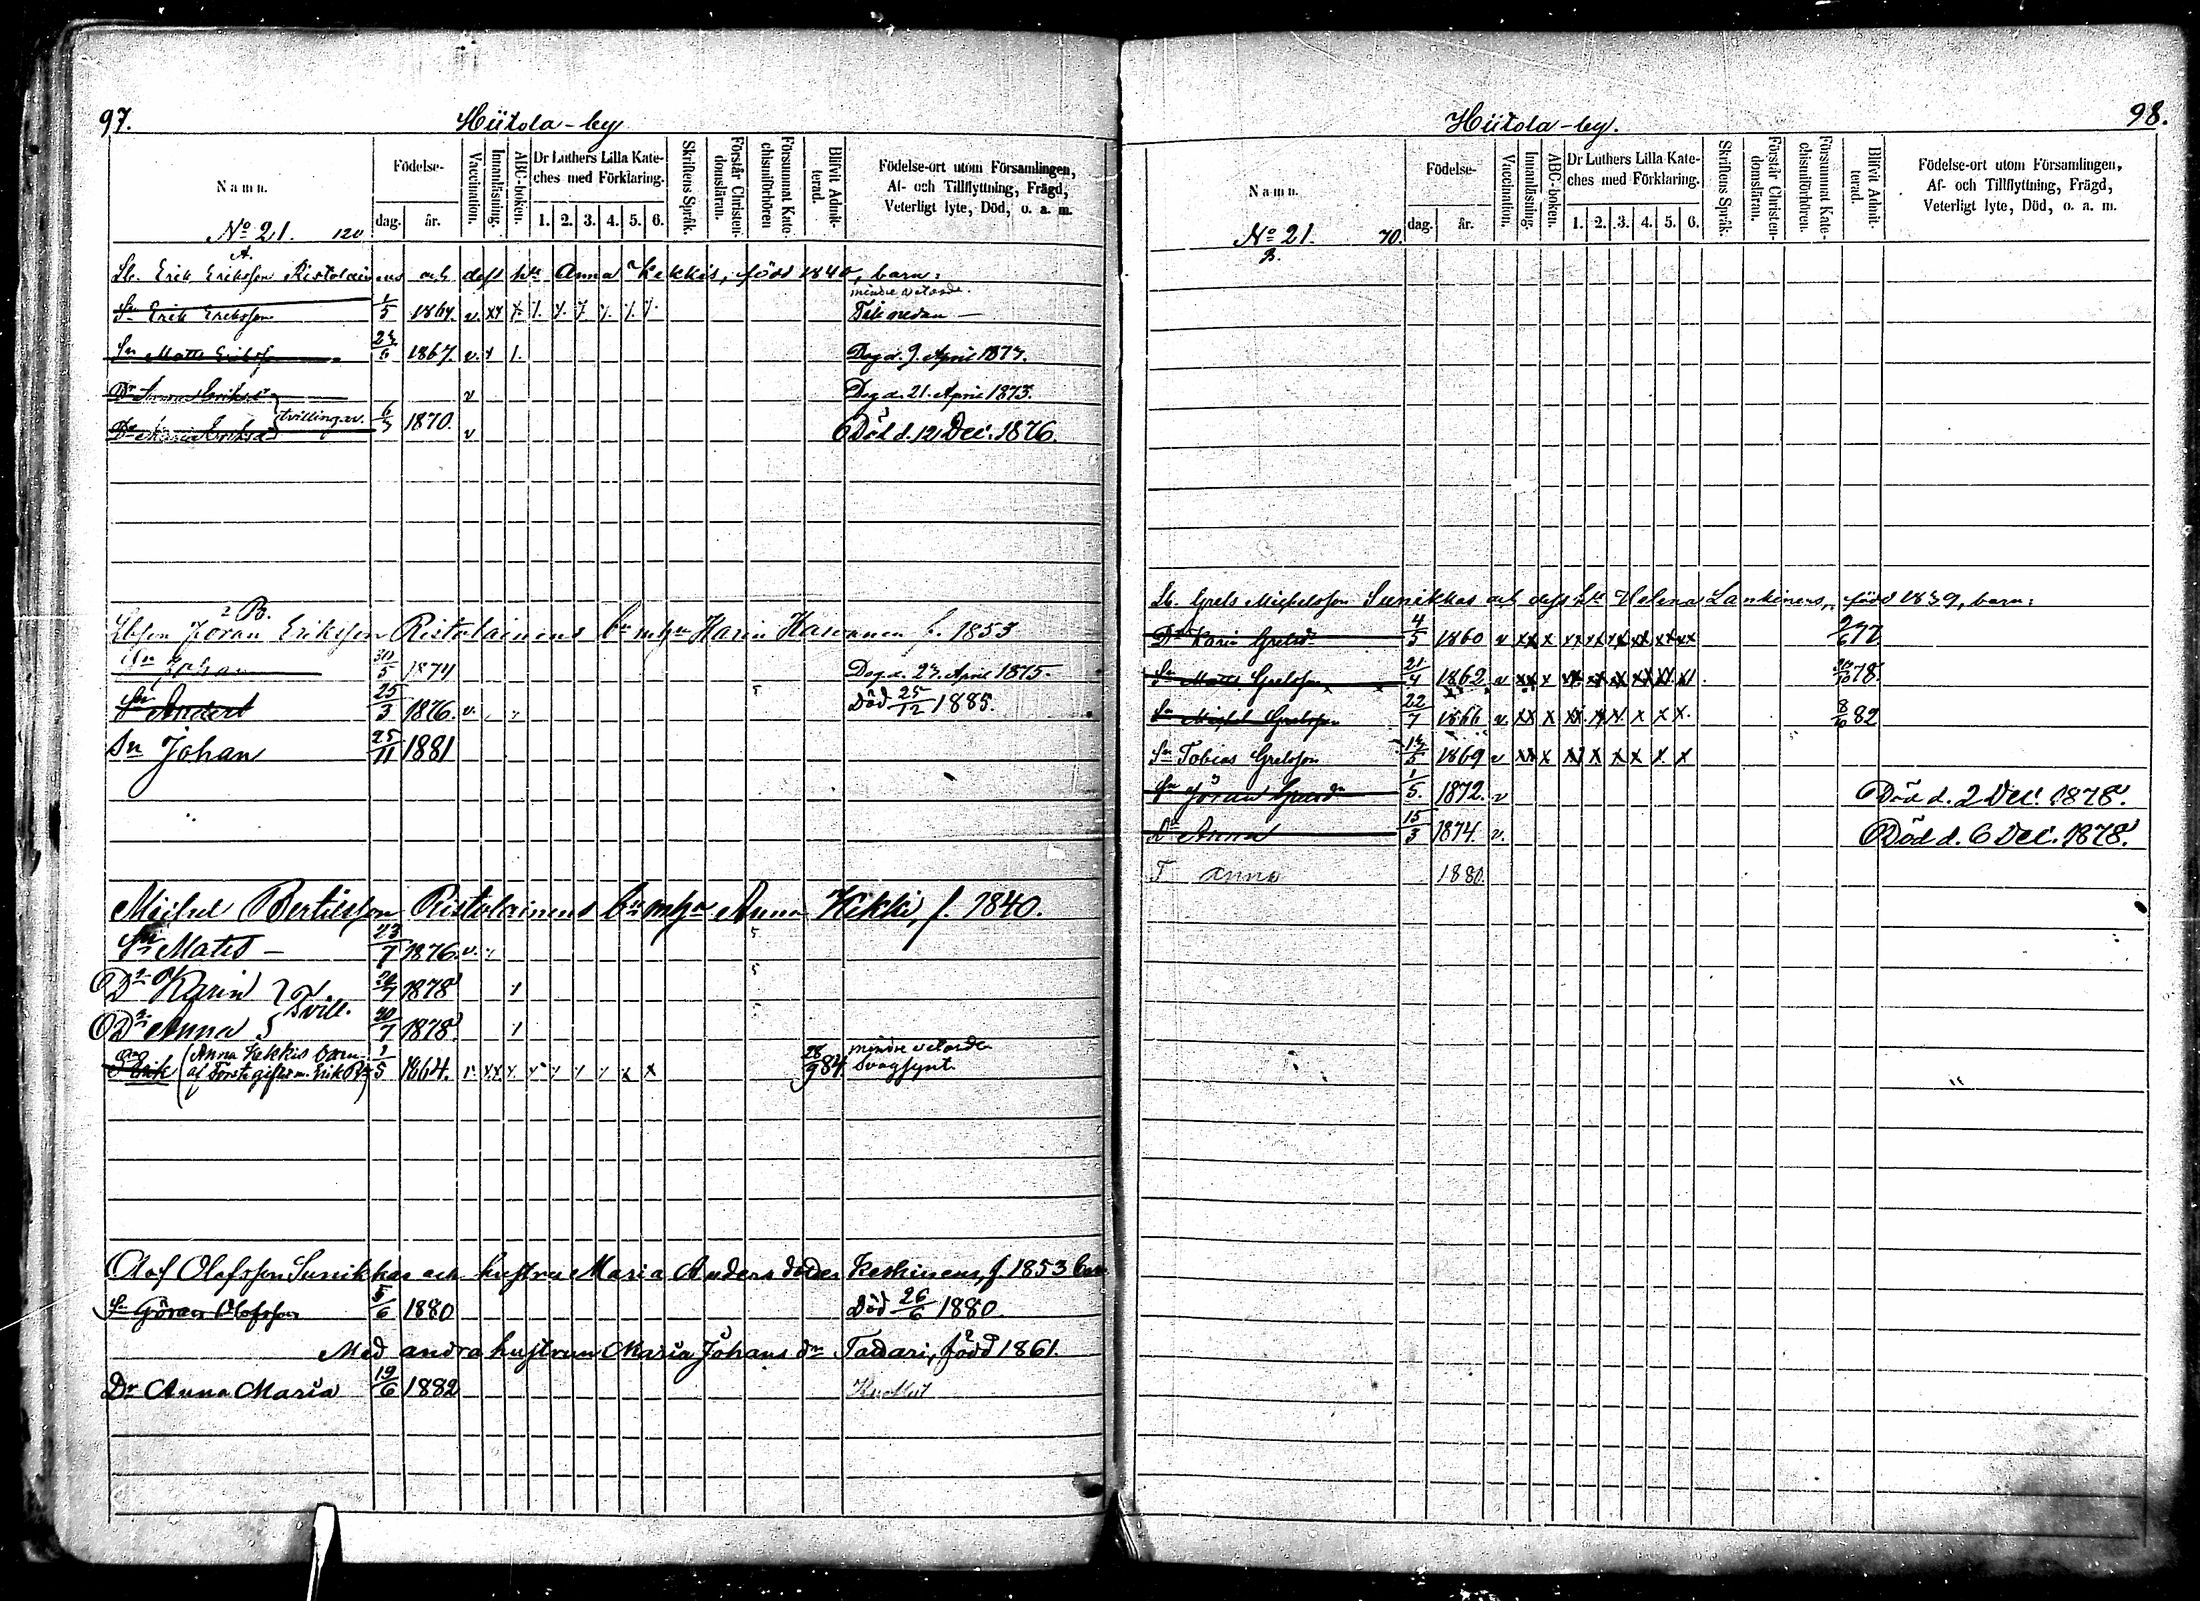 97.
Hiitola-by
Namn.
Födelse-
dag.
år.
Vaccination.
Innanläsning.
ABC-boken.
Dr Luthers Lilla Kate-
ches med Förklaring.
1. 2. 3. 4. 5. 6.
Skriftens Språk.
Förstår Christen-
domsläran.
Försummat Kate-
chismiförhören
Blifvit Admit-
terad.
Födelse-ort utom Församlingen,
Af- och Tillflyttning, Frägd,
Veterligt lyte, Död, o. a. m.
No 21. 120
A.
Lb. Erik Eriksson Ristolainens och dess hu Anna Kekkis, född 1840, barn:
mindre vetande
Sn Erik Eriksson 1/5 1864. v. nedan
Sn Matts Eriksson 1867. v. Dog d. 9. April 1877.
v Dog d. 21. April 1873.
Dr Maria Eriksd tvillingar. 1870. v Död d. 12 Dec. 1876.
B.
Göran Eriksson Ristolainens Karin f. 1853
Sn Johan 30/5 1874 Dog d. 27. April 1875.
Sn Anders 25/3 1876. v. Död 25/12 1885.
Sn Johan 25/11 1881
Michel Bertilsson Ristolainens Anna Kekki, f. 1840.
Sn Mats 23/7 1876. v.
Dr Karin 20/7 1878
Tvill.
Dr Anna 20/7 1878
Erik (Anna Kekkis barn af första giftet m. Erik 1/5 1864. v. x x 28/9 84. mindre vetande
Svagsynt
Olof Olofsson Sunikkas och hustru Maria Andersdotter Keskinens, f. 1853
Sn Göran Olofsson 5/6 1880 Död 26/6 1880.
Med andra hustrun Maria Johans dr Taddari, född 1861.
Dr Anna Maria 19/6 1882
98.
Hiitola-by.
Namn.
Födelse-
dag.
år.
Vaccination.
Innanläsning.
ABC-boken.
Dr Luthers Lilla Kate-
ches med Förklaring.
1. 2. 3. 4. 5. 6.
Skriftens Språk.
Förstår Christen-
domsläran.
Försummat Kate-
chismiförhören.
Blifvit Admit-
terad.
Födelse-ort utom Församlingen,
Af- och Tillflyttning, Frägd,
Veterligt lyte, Död, o. a. m.
No 21. 70.
B.
Lb. Grels Michelsson Sunikkas och dess hu Helena Lankinens, född 1839, barn:
Dr Karin Grelsdr 4/5 1860 v xx x xx xx xx xx xx xx 77
Sn Matts Grelsson 21/4 1862 v xx x 78.
Sn Michel Grelsson 22/7 1866 v xx x xx xx x x x x 8/6 82
Sn Tobias Grelsson 1869 v xx x xx x x x x x
Göran 1/5. 1872. v Död d. 2 Dec. 1878.
Dr Anna 15/3 1874. v. Död d. 6 Dec. 1878.
T Anna 1880.